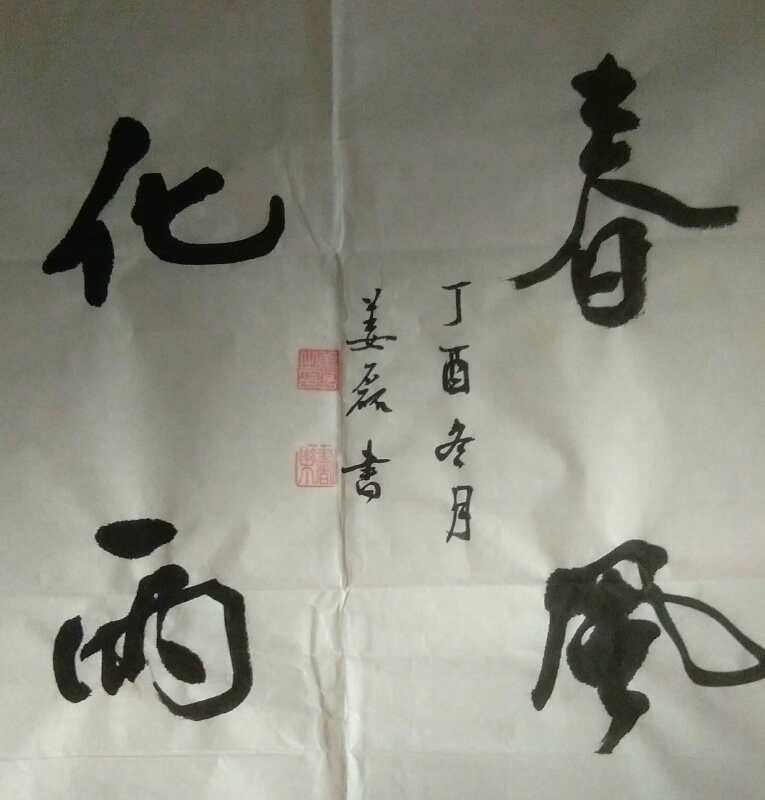 春风
化雨
丁酉冬月
姜磊书